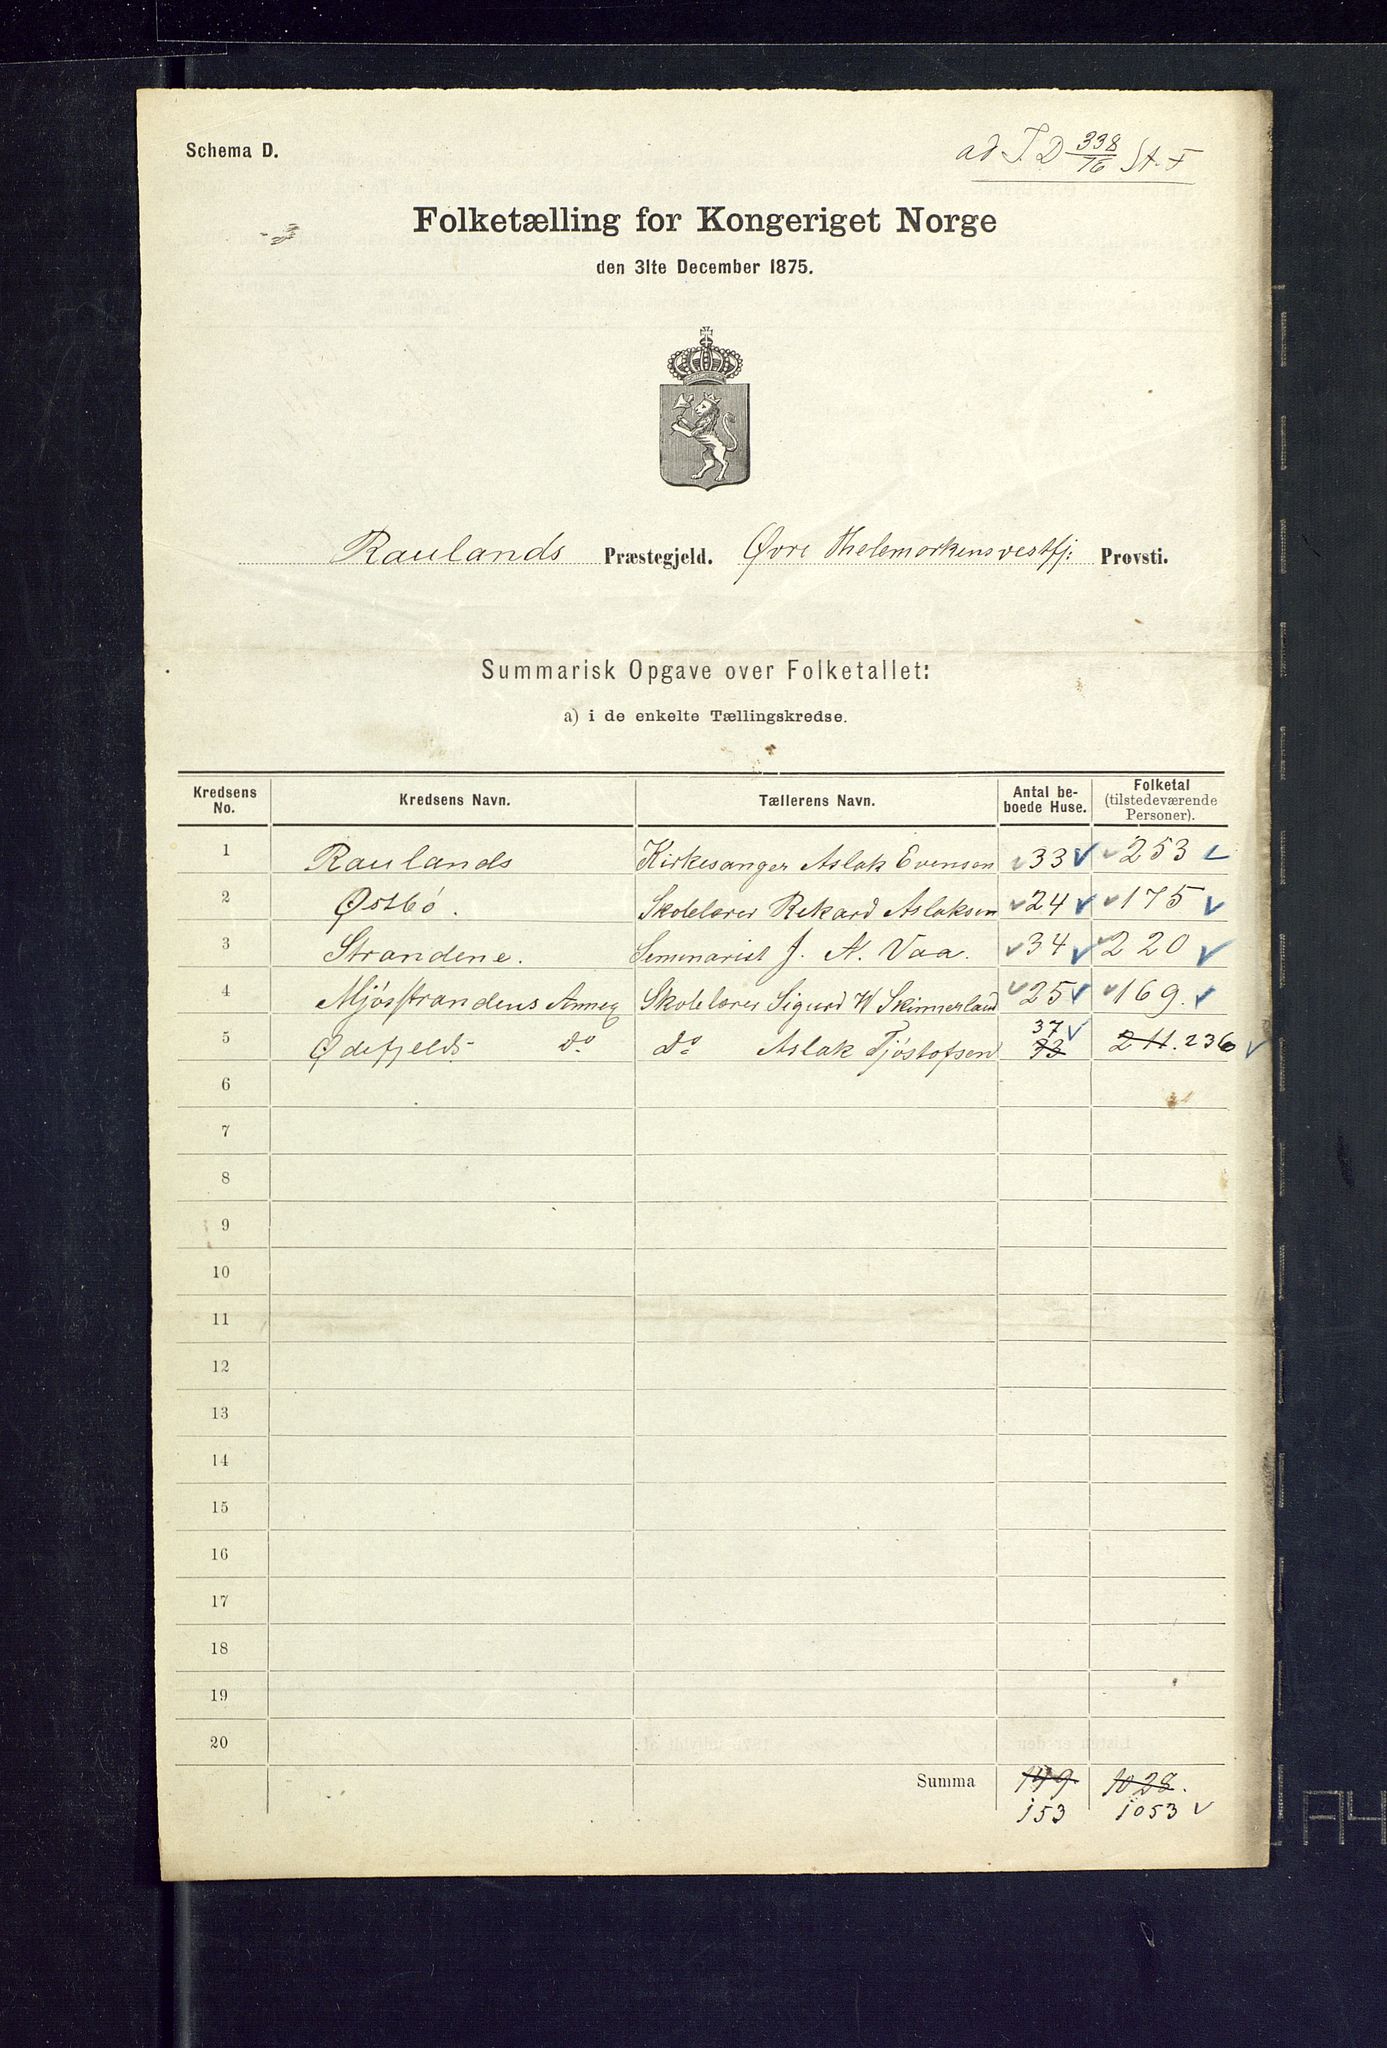 Schema D.
ad J. D 338/76 St. F
Folketælling for Kongeriget Norge
den 31te December 1875.
Raulands Præstegjeld. Øvre Thelemarkens vestfj: Provsti.
Summarisk Opgave over Folketallet:
a) i de enkelte Tællingskredse.
Kredsens No. Kredsens Navn. Tællerens Navn. Antal beboede Huse. Folketal (tilstedeværende Personer).
1 Raulands Kirkesanger Aslak Evensen 33 253
2 Østbö. Skolelærer Rikard Aslaksen 24 175
3 Strandene. Seminarist J. N. Vaa. 34 220
4 Mjösstrandens Annex Skolelærer Sigurd H Skinnerland 25 169.
5 Ödefjelds do do Aslak Tjöstofsen 33 37 211. 236
6
7
8
9
10
11
12
13
14
15
16
17
18
19
20
Summa 149. 1028.
153 1053
A4